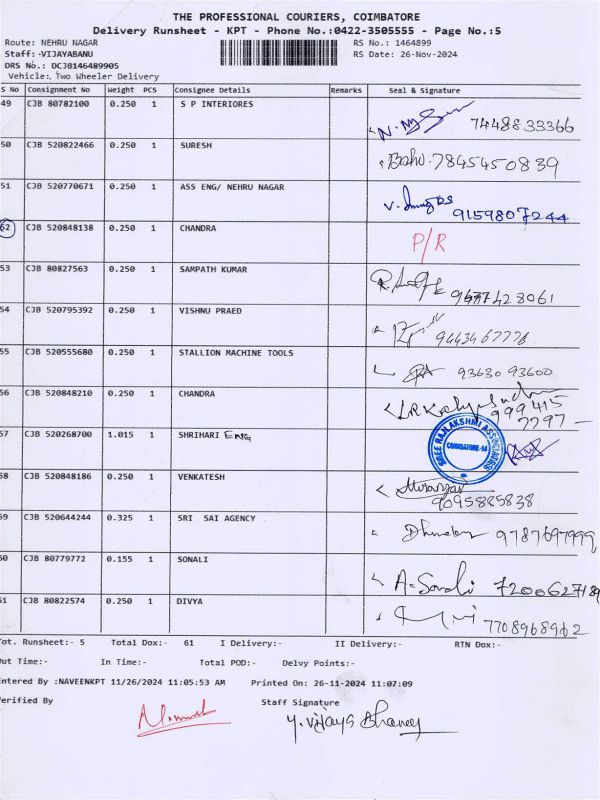 THE PROFESSIONAL COURIERS, COIMBATORE
Delivery Runsheet - KPT - Phone No.:0422-3505555 - Page No.:5
Route: NEHRU NAGAR
RS No.: 1464899
Staff: -VIJAYABANU
RS Date: 26-Nov-2024
DRS No.: DCJB146489905
Vehicle: Two Wheeler Delivery
S No Consignment No Weight PCS Consignee Details Remarks Seal & Signature
49 CJB 80782100 0.250 1 S P INTERIORES 7448833366
50 CJB 520822466 0.250 1 SURESH 7845450839
51 CJB 520770671 0.250 1 ASS ENG/ NEHRU NAGAR 9159807244
52 CJB 520848138 0.250 1 CHANDRA P/R
53 CJB 80827563 0.250 1 SAMPATH KUMAR
54 CJB 520795392 0.250 1 VISHNU PRAED
55 CJB 520555680 0.250 1 STALLION MACHINE TOOLS 93630 93600
56 CJB 520848210 0.250 1 CHANDRA 999 415
7297 -
57 CJB 520268700 1.015 1 SHRIHARI ENG SREE RAJLAKSHMI ASSOCIATES COIMBATORE-14
58 CJB 520848186 0.250 1 VENKATESH
9095885838
59 CJB 520644244 0.325 1 SRI SAI AGENCY 9787697999
60 CJB 80779772 0.155 1 SONALI A-Sonali 7200627189
61 CJB 80822574 0.250 1 DIVYA
7708968962
Tot. Runsheet:- 5 Total Dox:- 61 I Delivery:- II Delivery:- RTN Dox:-
Out Time:- In Time:- Total POD:- Delvy Points:-
Entered By :NAVEENKPT 11/26/2024 11:05:53 AM Printed On: 26-11-2024 11:07:09
Verified By Staff Signature
Y. Vijaya Bhanu